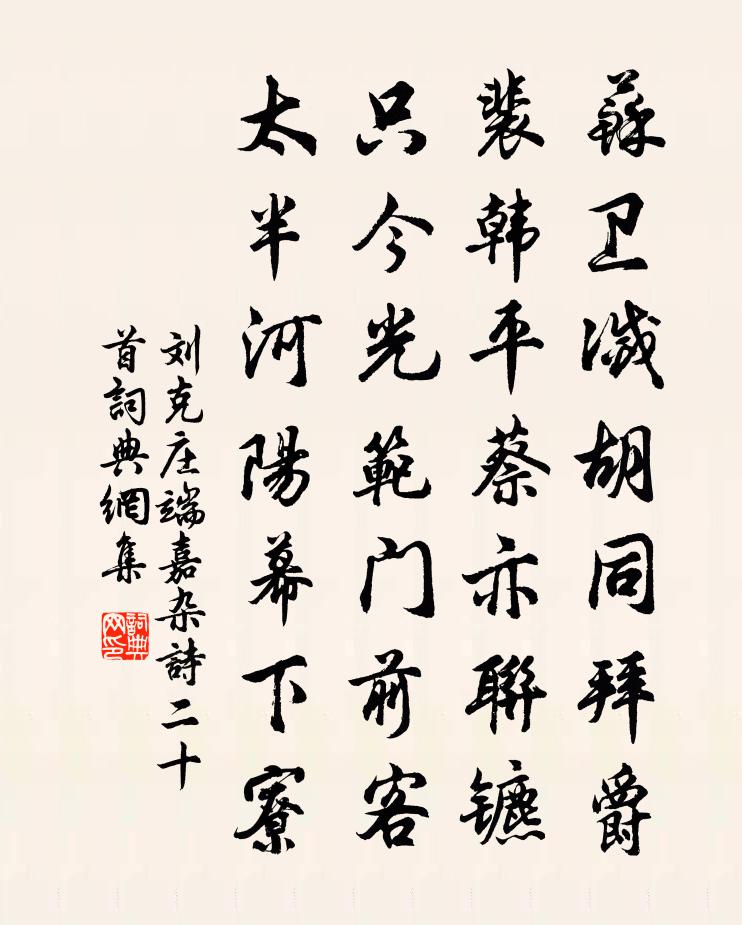 蘇卫滅胡同拜爵
裴韩平蔡亦聯镳
只今光範门前客
太半河陽幕下寮
刘克庄端嘉杂詩二十
首詞典網集
詞典
网印